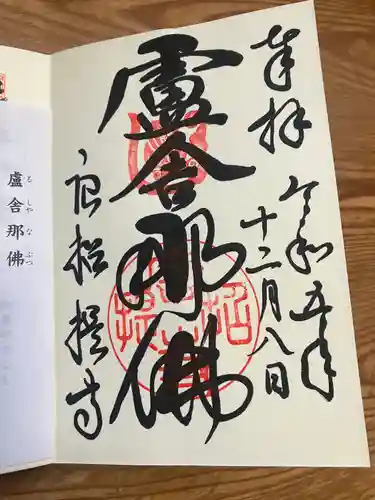 奉拝
令和五年
十二月八日
盧舎那佛
唐招提寺
盧舎那佛
る しゃ な ぶつ